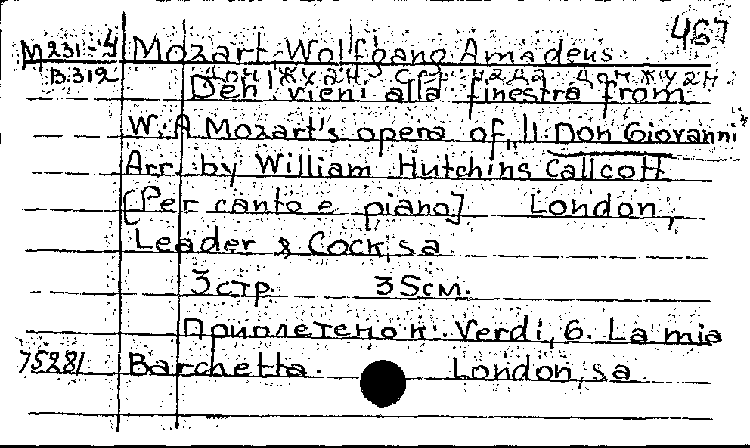 467
M231-4 Mozart, Wolfgang Amadeus.
B.312
Deh! vieni alla finestra from
W. A Mozart's opera of „Il Don Giovanni"
Arr. by William Hutchins Callcott
[Per canto e piano] London,
Leader & Cock, s a
3 стр. 35см.
Приплетено к: Verdi, G. La mia
75281 Barchetta. London, s a